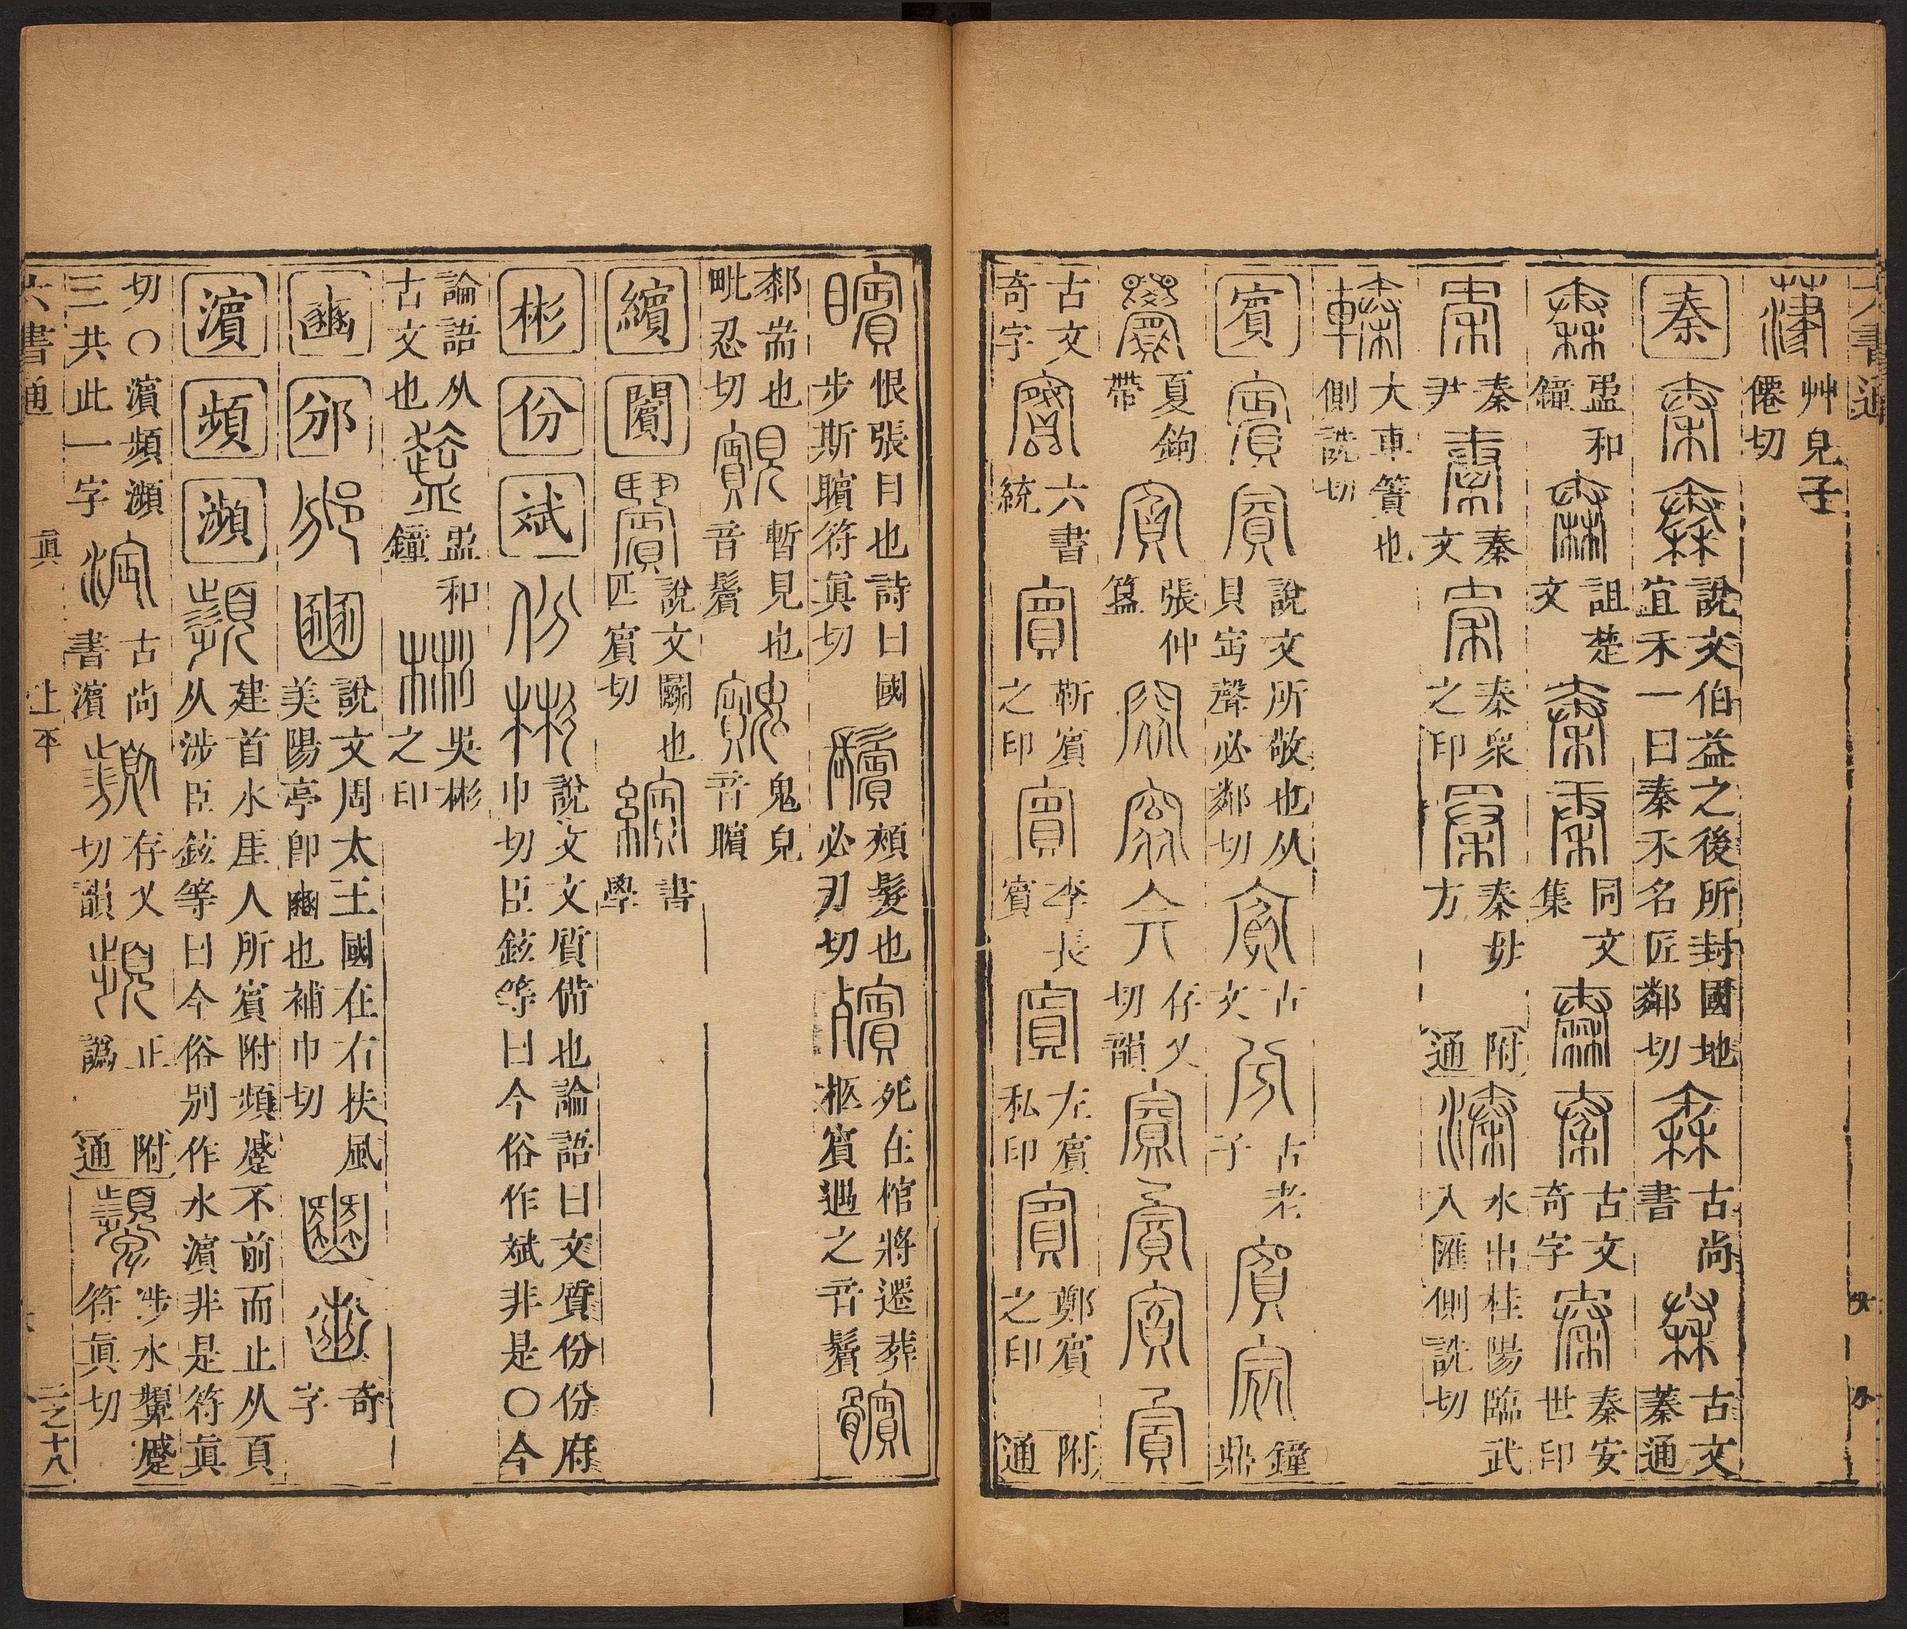 六書通
艸皃子僊切
秦 說文伯益之後所封國地宜禾一曰秦禾名匠鄰切 古尚書 古文 蓁通
盄和鐘 詛楚文 同文集 古文奇字 秦安世印
秦尹 秦文 秦衆之印 秦妢方 附通 水出桂陽臨武入匯側詵切
大車簀也側詵切
賓 說文所敬也从貝㝉聲必鄰切 古文 古老子 鐘鼎
夏鉤帶 張仲簋 存乂切韻
古文奇字 六書統 靳賓之印 李長賓 左賓私印 鄭賓之印 附通
恨張目也詩曰國步斯矉符眞切 頰髮也必刃切 死在棺將遷葬柩賓遇之音鬢
毗忍切 暫見也音鬢 鬼皃音矉
繽 闠 說文鬭也匹賓切 書學
彬 份 斌 說文文質僃也論語曰文質份份府巾切臣鉉等曰今俗作斌非是〇今
論語从古文也 盄和鐘 吳彬之印
豳 邠 說文周太王國在右扶風美陽亭卽豳也補巾切 奇字
濵 頻 瀕 建首水厓人所賓附頻蹙不前而止从頁从涉臣鉉等曰今俗別作水濵非是符眞
切〇濵頻瀕三共此一字 古尚書濵 存乂切韻 止譌 附通 涉水顰蹙符眞切
六書通 眞 上平 二之十八